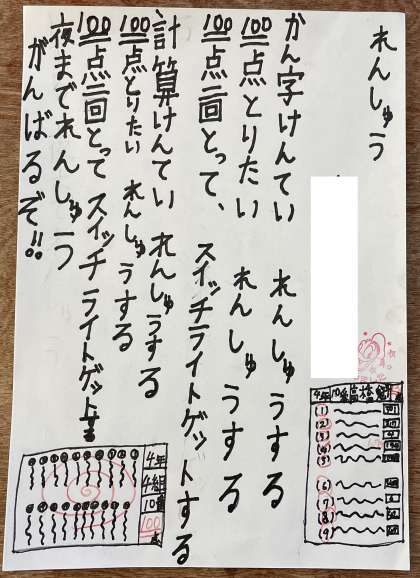 れんしゅう
かん字けんてい　れんしゅうする
100点とりたい　れんしゅうする
100点二回とって、スイッチライトゲットする
計算けんてい　れんしゅうする
100点とりたい　れんしゅうする
100点二回とってスイッチライトゲットする
夜までれんしゅう
がんばるぞ!!
4年
(1)
(2)
(3)
(4)
(5)
(6)
(7)
(8)
(9)
4年
4組
10番
100点